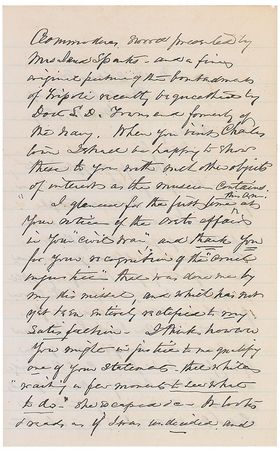 Commodores sword presented by
Mrs and Sparks - and a fine
original picture of the bombardment
of Tripoli recently bequeathed by
Doct S. D. and formerly of
the Navy. When you visit Charles
town I shall be happy to show
these to you with such other objects
of interest as the museum contains.
"I glanced for the first time at
your notice of the affair"
in your "civil war", and thank you
for your recognition of the "
injustice" that was done me by
my dismissal, and which has not
yet been entirely rectified to my
satisfaction - I think however
you might in justice to me qualify
one of your statements - that while
"waiting a few moments to see what
to do" she escaped &c - It looks
& reads as if I was undecided and